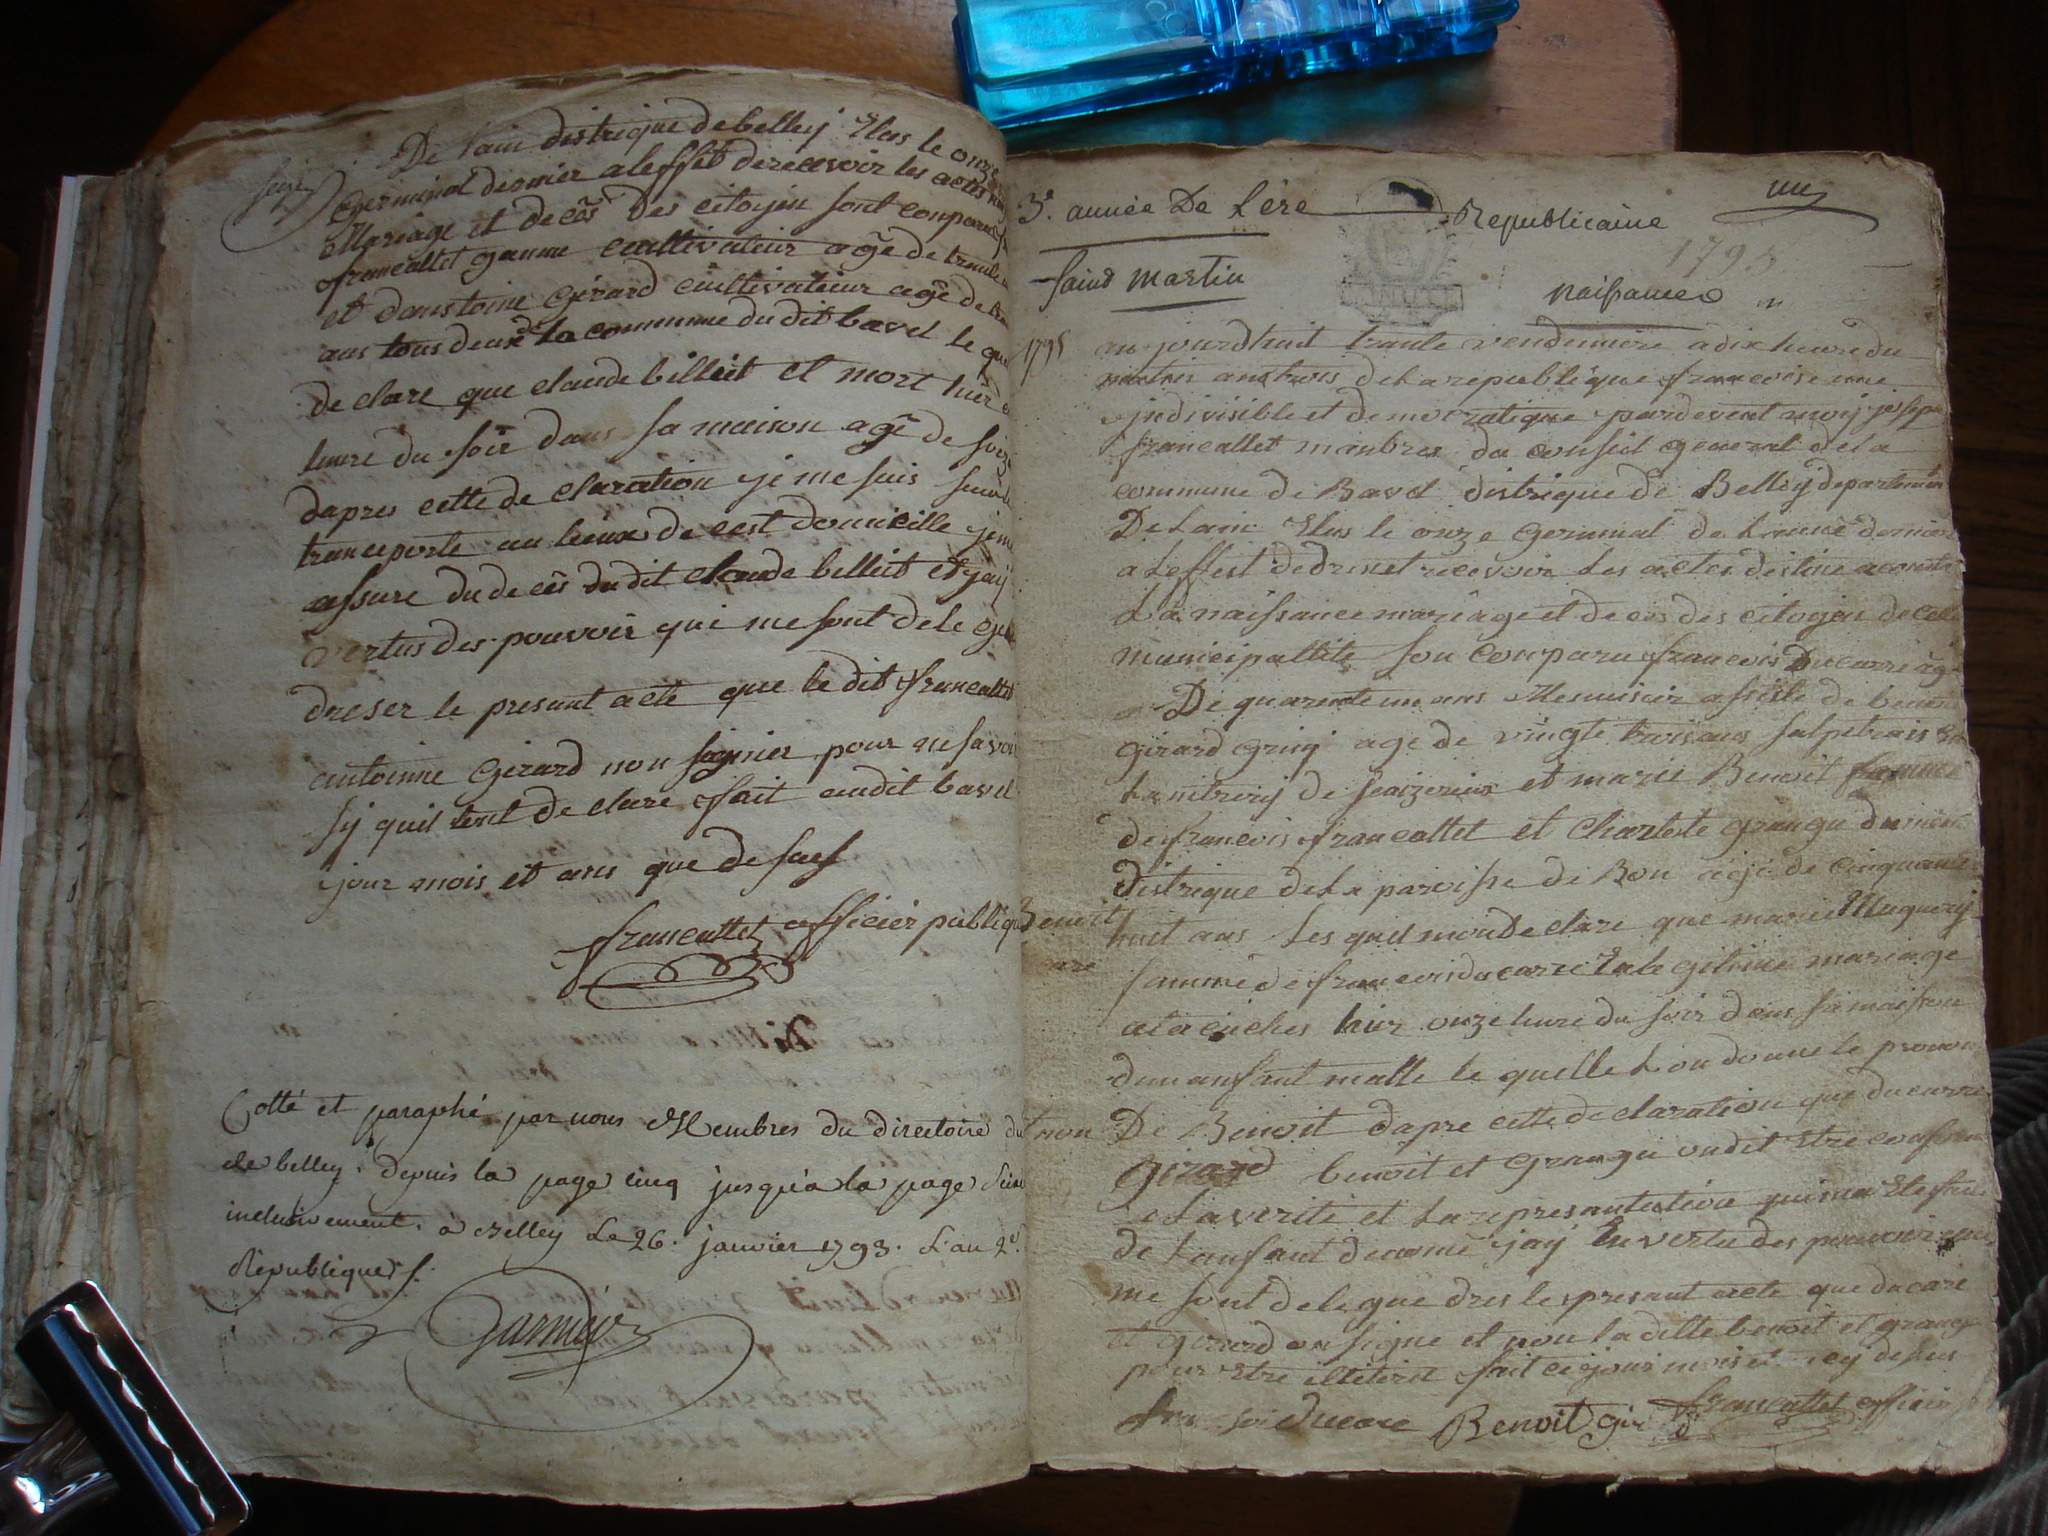 seize
De lain distrique de belley Elus le onze
germinal dernier a leffet de recevoir les actes
Mariage et de cês des citoyen sont conparu
francallet gamme cultivateur agê de trente
et dantoine gerard cultivateur agê de
ans tous deux de la commune du dit bavel le
de clare que claude billiet et mort hier
heure du soir dans sa maison agê de
dapres cette de claration je me suis
transporte au lieux de cest domicille je me
assure du de cês du dit claude billiet et jay
vertus des pouvoir qui me sont dele
dreser le presant acte que le dit francallet
antoinne gerard non signier pour ne savoir
sy quil sont de clare fait audit bavel
jour mois et ans que de sus
francallet officier publique
Cotté et paraphé par nous Membres du directoire du
de belley, depuis la page cinq jusqu'a la page Seize
inclusivement. à Belley le 26. janvier 1793. l'an 2e.
Republique
3e. année De L'ère Republicaine
1795
Saint Martin naissance
1795
au jourdhuit trante vendemiere a dix heure du
matin ans trois de la republique francoise une
indivisible et democratique pardevent moij joseph
francallet manbres du conseil general de la
commune de Bavel distrique de Belley departement
De Lain Elus le onze germinal de Lannee dernier
a Leffest de dreset recevoir Les actes destine a
La naissance mariage et de cês des citoyen de
municipallite son conparu francois Ducarre age
De quarente un ans Menuisier assiste de benoit
girard agé de vingte trois ans salpetrais
et marie Benoit famme
de francois francallet et Charlote
distrique de La paroisse de Bon agé de cinquante
huit ans Les quel mon de clare que marie Muguery
Benoit
famme de francois ducarre En legitime mariage
et acuches hier onze heure du soir dans sa maison
dun anfant malle le quelle Lon donne le pronon
De Benoit dapre cette de claration que ducarre
girard benoit et
La verite et La represantation qui ma Ete faite
de Lanfant denomé jay En vertu des pouvoir que
me sont delegue dres le presant acte que ducare
et girard on signe et non la ditte benoit et
pour Etre illiteret fait ce jour mois et de sus
ducare Benoit francallet officier